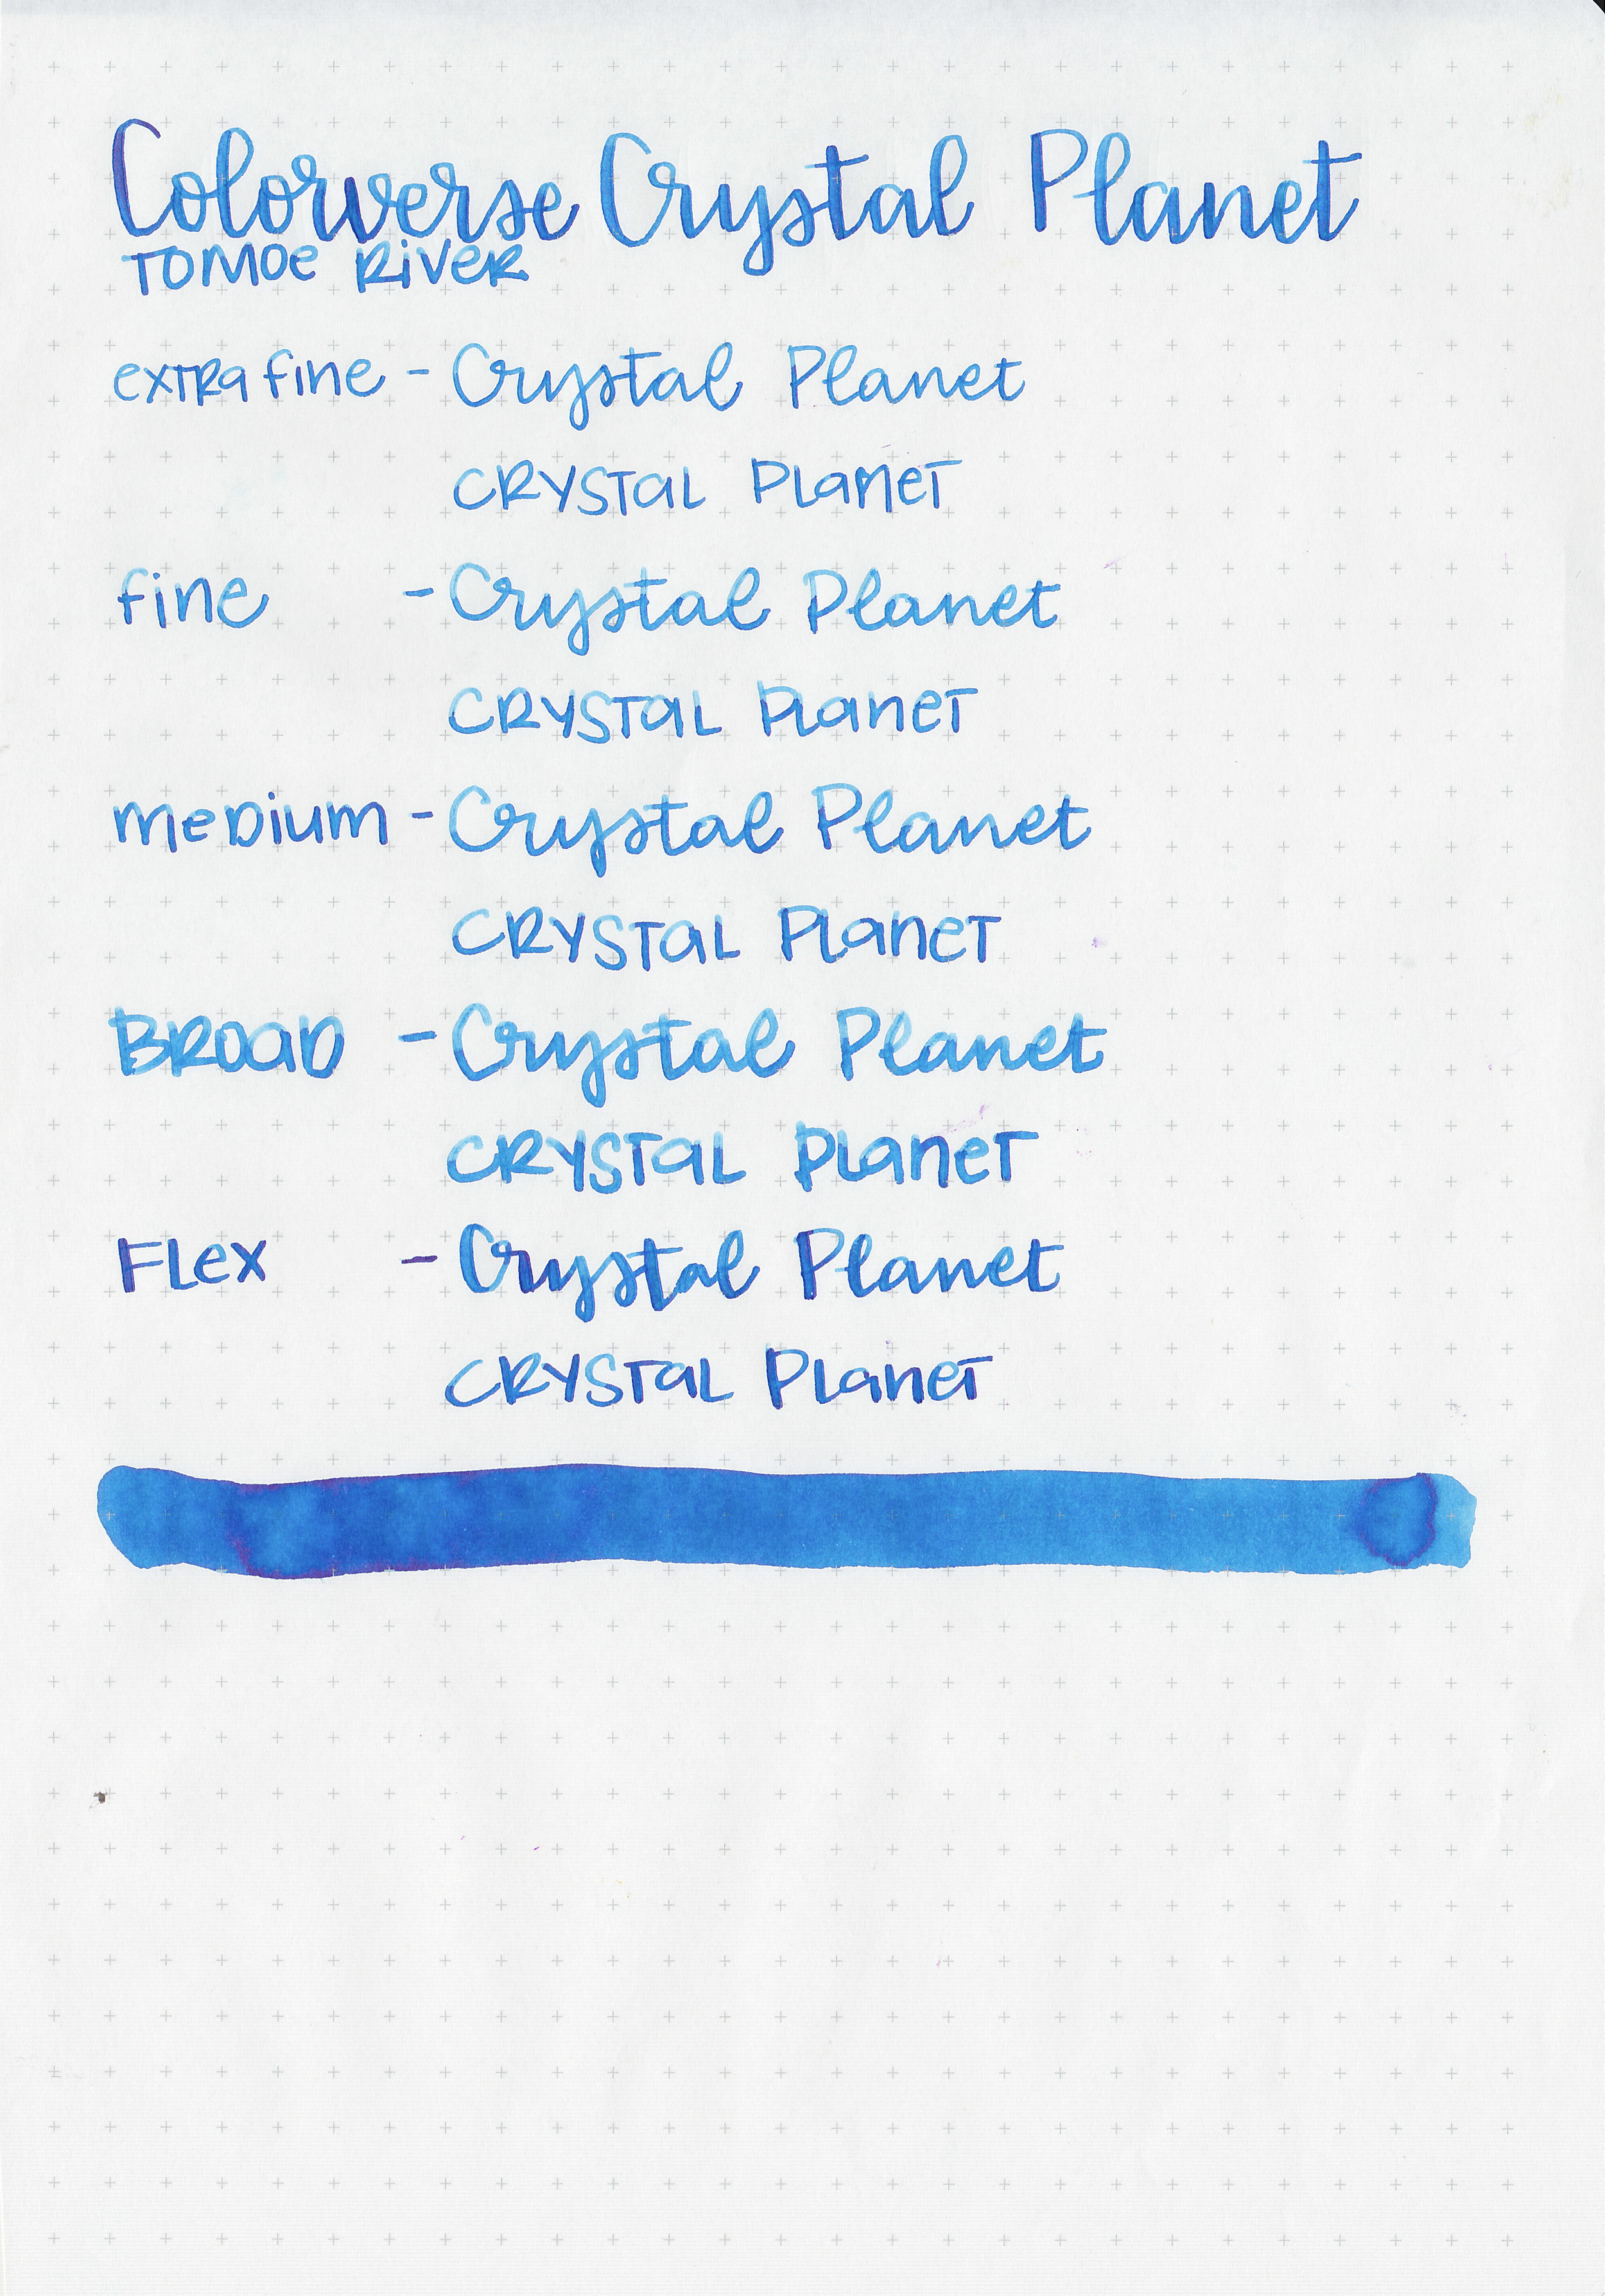 Colorverse Crystal Planet
TOMOE RIVER
extra fine - Crystal Planet
CRYSTAL PLANET
fine - Crystal Planet
CRYSTAL PLANET
MEDIUM - Crystal Planet
CRYSTAL PLANET
BROAD - Crystal Planet
CRYSTAL PLANET
FLEX - Crystal Planet
CRYSTAL PLANET